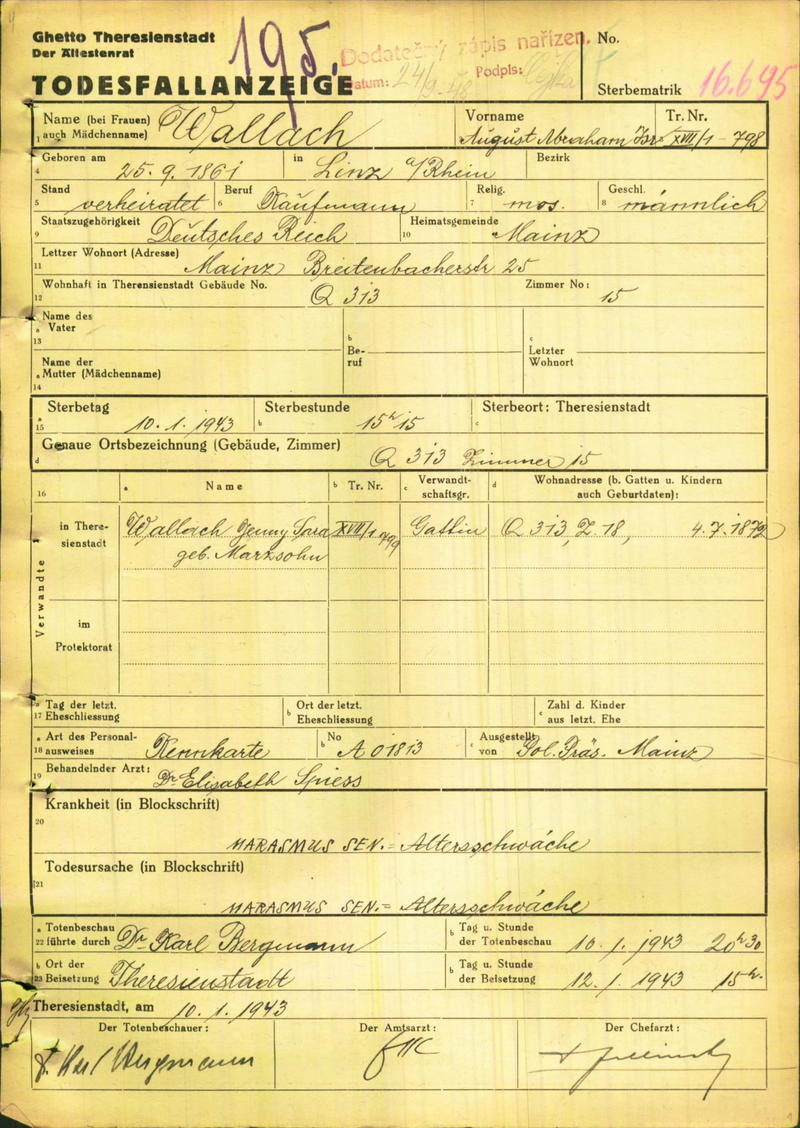 Ghetto Theresienstadt
Der Ältestenrat
TODESFALLANZEIGE
195.
Dodatečný zápis nařízen.
Datum: 24/9 48 Podpis:
No.
Sterbematrik 16.695
Name (bei Frauen) auch Mädchenname) Wallach
Vorname August Abraham Isr
Tr. Nr. XVII/1-798
Geboren am 25.9.1861 in Linz a/Rhein Bezirk
Stand verheiratet Beruf Kaufmann Relig. mos. Geschl. männlich
Staatszugehörigkeit Deutsches Reich Heimatsgemeinde Mainz
Lettzer Wohnort (Adresse) Mainz Breitenbacherstr 25
Wohnhaft in Therensienstadt Gebäude No. Q 313 Zimmer No: 15
Name des Vater
Beruf
Letzter Wohnort
Name der Mutter (Mädchenname)
Sterbetag 10.1.1943 Sterbestunde 15h15 Sterbeort: Theresienstadt
Genaue Ortsbezeichnung (Gebäude, Zimmer) Q 313 Zimmer 15
16 a Name b Tr. Nr. c Verwandtschaftsgr. d Wohnadresse (b. Gatten u. Kindern auch Geburtdaten):
Verwandte
in Theresienstadt Wallach Jenny Sara XVII/1 799 Gattin Q 313, Z. 18, 4.7.1872
geb. Marxsohn
im Protektorat
Tag der letzt. Eheschliessung
Ort der letzt. Eheschliessung
Zahl d. Kinder aus letzt. Ehe
Art des Personalausweises Kennkarte No A 01813 Ausgestellt von Pol. Präs. Mainz
Behandelnder Arzt: Dr Elisabeth Spiess
Krankheit (in Blockschrift)
MARASMUS SEN. = Altersschwäche
Todesursache (in Blockschrift)
MARASMUS SEN. = Altersschwäche
Totenbeschau führte durch Dr Karl Bergmann Tag u. Stunde der Totenbeschau 10.1.1943 20h30
Ort der Beisetzung Theresienstadt Tag u. Stunde der Beisetzung 12.1.1943 15h.
Theresienstadt, am 10.1.1943
Der Totenbeschauer: Der Amtsarzt: Der Chefarzt:
Dr. Karl Bergmann